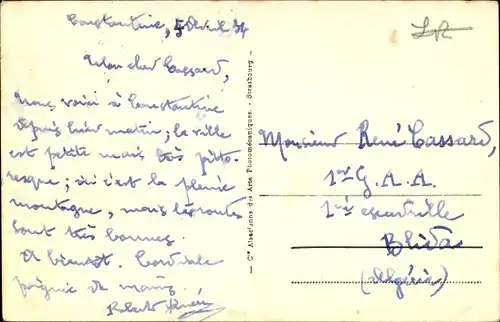 Constantine, 5 Avril 34
Mon cher Cassard,
Nous voici à Constantine
depuis hier matin; la ville
est petite mais très pitto-
resque; ici c'est la pleine
montagne, mais les routes
sont très bonnes.
A bientôt. Cordiale
poignée de mains.
Robert
— Cie Alsacienne des Arts Photomécaniques - Strasbourg —
Monsieur René Cassard,
1er G.A.A.
1ère escadrille
Blida
(Algérie)